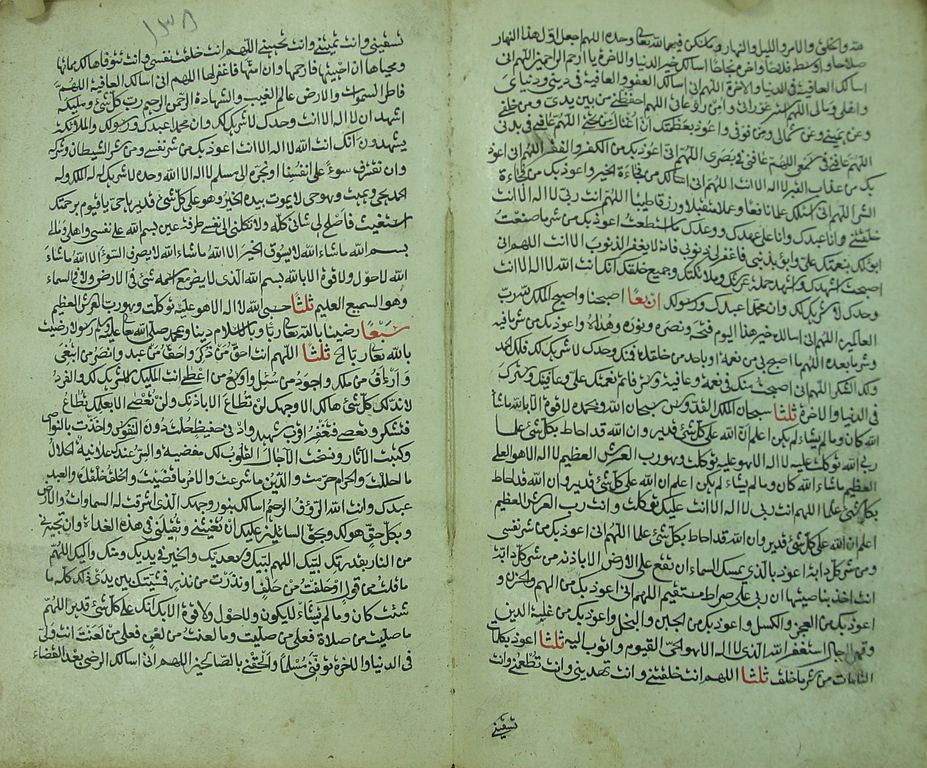 لله والخلق والامر والليل والنهار وما سكن فيهما لله تعالى وحده اللهم اجعل اول هذا النهار
صلاحا واوسطه فلاحا واخره نجاحا اسالك خير الدنيا والاخرة يا ارحم الراحمين اللهم انى
اسالك العافية فى الدنيا والاخرة اللهم انى اسالك العفو والعافية فى دينى ودنياى
واهلى ومالى اللهم استر عوراتى وآمن روعاتى اللهم احفظنى من بين يدى ومن خلفى
وعن يمينى وعن شمالى ومن فوقى واعوذ بعظمتك ان اغتال من تحتى اللهم عافنى فى بدنى
اللهم عافنى فى سمعى اللهم عافنى فى بصرى اللهم انى اعوذ بك من الكفر والفقر اللهم انى اعوذ
بك من عذاب القبر لا اله الا انت اللهم انى اسالك من فجاءة الخير واعوذ بك من فجاءة
الشر اللهم انى اسئلك علما نافعا وعملا متقبلا ورزقا طيبا اللهم انت ربى لا اله الا انت
خلقتنى وانا عبدك وانا على عهدك ووعدك ما استطعت اعوذ بك من شر ما صنعت
ابوء لك بنعمتك على وابوء بذنبى فاغفر لى ذنوبى فانه لا يغفر الذنوب الا انت اللهم انى
اصبحت اشهدك واشهد حملة عرشك وملائكتك وجميع خلقك انك انت الله لا اله الا انت
وحدك لا شريك لك وان محمدا عبدك ورسولك اربعا اصبحنا واصبح الملك لله رب
العالمين اللهم انى اسالك خير هذا اليوم فتحه ونصره ونوره وهداه واعوذ بك من شر ما فيه
وشر ما بعده اللهم ما اصبح بى من نعمة او باحد من خلقك فمنك وحدك لا شريك لك فلك الحمد
ولك الشكر اللهم انى اصبحت منك فى نعمة وعافية وستر فاتم نعمتك على وعافيتك وسترك
فى الدنيا والاخرة ثلثا سبحان الملك القدوس سبحان الله وبحمده لا قوة الا بالله ما شاء
الله كان وما لم يشاء لم يكن اعلم ان الله على كل شئ قدير وان الله قد احاط بكل شئ علما
ربى الله توكلت عليه لا اله الا هو عليه توكلت وهو رب العرش العظيم لا اله الا هو العلى
العظيم ما شاء الله كان وما لم يشاء لم يكن اعلم ان الله على كل شئ قدير وان الله قد احاط
بكل شئ علما اللهم انت ربى لا اله الا انت عليك توكلت وانت رب العرش العظيم
اعلم ان الله على كل شئ قدير وان الله قد احاط بكل شئ علما اللهم انى اعوذ بك من شر نفسى
ومن شر كل دابة اعوذ بالذى يمسك السماء ان تقع على الارض الا باذنه من شر كل دابة
انت اخذ بناصيتها ان ربى على صراط مستقيم اللهم انى اعوذ بك من الهم والحزن و
اعوذ بك من العجز والكسل واعوذ بك من الجبن والبخل واعوذ بك من غلبة الدين
وقهر الرجال استغفر الله الذى لا اله الا هو الحى القيوم واتوب اليه ثلثا اعوذ بكلمات
التامات من شر ما خلق ثلثا اللهم انت خلقتنى وانت تهدينى وانت تطعمنى وانت
تسقينى
١٣٨
تسقينى وانت تميتنى وانت تحيينى اللهم انت خلقت نفسى وانت تتوفاها لك مماتها
ومحياها ان احييتها فارحمها وان امتها فاغفر لها اللهم انى اسالك العافية اللهم
فاطر السموات والارض عالم الغيب والشهادة الرحمن الرحيم رب كل شئ ومليكه
اشهد ان لا اله الا انت وحدك لا شريك لك وان محمدا عبدك ورسولك والملائكة
يشهدون انك انت الله لا اله الا انت اعوذ بك من شر نفسى ومن شر الشيطان وشركه
وان نقترف سوءً على انفسنا او نجره الى مسلم لا اله الا الله وحده لا شريك له له الملك وله
الحمد يحيى ويميت وهو حى لا يموت بيده الخير وهو على كل شئ قدير يا حى يا قيوم برحمتك
استغيث فاصلح لى شانى كله ولا تكلنى الى نفسى طرفة عين بسم الله على نفسى واهلى ومالى
بسم الله ما شاء الله لا يسوق الخير الا الله ما شاء الله لا يصرف السوء الا الله ما شاء
الله لا حول ولا قوة الا بالله بسم الله الذى لا يضر مع اسمه شئ فى الارض ولا فى السماء
وهو السميع العليم ثلثا حسبى الله لا اله الا هو عليه توكلت وهو رب العرش العظيم
سبعا رضينا بالله تعالى ربا وبالاسلام دينا وبمحمد صلى الله تعالى عليه وسلم رسولا رضيت
بالله تعالى ربا الخ ثلثا اللهم انت احق من ذكر واحق من عبد وانصر من ابتغى
وارأف من ملك واجود من سئل واوسع من اعطى انت المليك لا شريك لك والفرد
لا ند لك كل شئ هالك الا وجهك لن تطاع الا باذنك ولن تعصى الا بعلمك تطاع
فتشكر وتعصى فتغفر اقرب شهيد وادنى حفيظ حلت دون النفوس واخذت بالنواصى
وكتبت الآثار ونسخت الآجال القلوب لك مفضية والسر عندك علانية الحلال
ما احللت والحرام ما حرمت والدين ما شرعت والامر ما قضيت والخلق خلقك والعبد
عبدك وانت الله الرؤف الرحيم اسالك بنور وجهك الذى اشرقت له السماوات والارض
وبكل حق هو لك وبحق السائلين عليك ان تغيثنى وتقيلنى فى هذه الغداة وان تجيرنى
من النار بقدرتك لبيك اللهم لبيك وسعديك والخير فى يديك ومنك واليك اللهم
ما قلت من قول او حلفت من حلف او نذرت من نذر فمشيتك بين يدى ذلك كله ما
شئت كان وما لم تشاء لا يكون ولا حول ولا قوة الا بك انك على كل شئ قدير اللهم
ما صليت من صلاة فعلى من صليت وما لعنت من لعن فعلى من لعنت انت وليى
فى الدنيا والاخرة توفنى مسلما والحقنى بالصالحين اللهم انى اسالك الرضى بعد القضاء